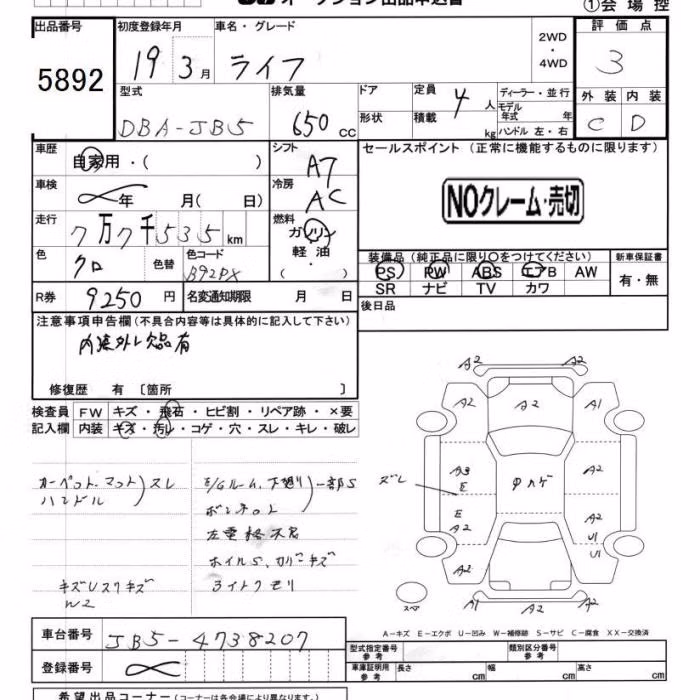 オークション出品申込書
①会場控
出品番号
5892
初度登録年月
車名・グレード
19 3月
ライフ
2WD
・
4WD
評価点
3
外装 内装
C D
型式
DBA-JB5
排気量
650 cc
ドア
形状
定員
4人
積載
kg
ディーラー・並行
モデル年式 年
ハンドル 左・右
車歴
自家用・( )
シフト
A7
セールスポイント (正常に機能するものに限ります)
NOクレーム・売切
車検
年 月( 日)
冷房
AC
走行
7万7千535km
燃料
ガソリン
軽油
( )
色
クロ
色替
色コード
B92PX
装備品(純正品に限り○をつけてください)
新車保証書
PS PW ABS エアB AW
SR ナビ TV カワ
有・無
R券
9250円
名変通知期限 月 日
後日品
注意事項申告欄(不具合内容等は具体的に記入して下さい)
内装外し欠品有
修復歴 有 〔箇所 〕
検査員 FW キズ・飛石・ヒビ割・リペア跡・×要
記入欄 内装 キズ・汚レ・コゲ・穴・スレ・キレ・破レ
カーペット.マット スレ
ハンドル
E/Gルーム.下廻り 一部S
ボンネット
ホイルS.カバーキズ
ライトクモリ
キズUスリキズ
W2
A2 A2
A2 A2 A1
ズレ
A3
E
A2
E
A2
A2
U1
U1
A2
スペア
A1 A2 A2
A-キズ E-エクボ U-凹み W-補修跡 S-サビ C-腐食 XX-交換済
車台番号
JB5-4738207
登録番号
型式指定番号
参考
類別区分番号
参考
車庫証明用
参考
長さ cm 幅 cm 高さ cm
希望出品コーナー(コーナーは各会場により異なります。)